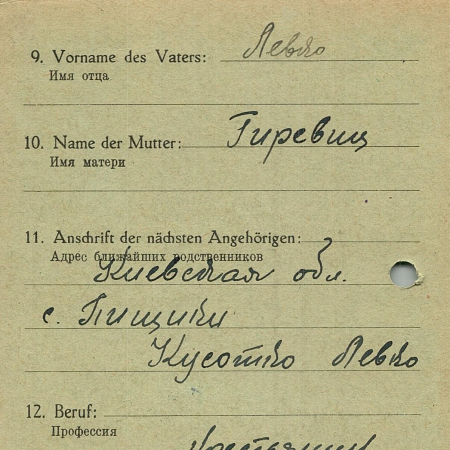 9. Vorname des Vaters: Левко
Имя отца
10. Name der Mutter: Гиревиц
Имя матери
11. Anschrift der nächsten Angehörigen:
Адрес ближайших родственников
Киевская обл.
с. Пищики
Кусотко Левко
12. Beruf:
Профессия